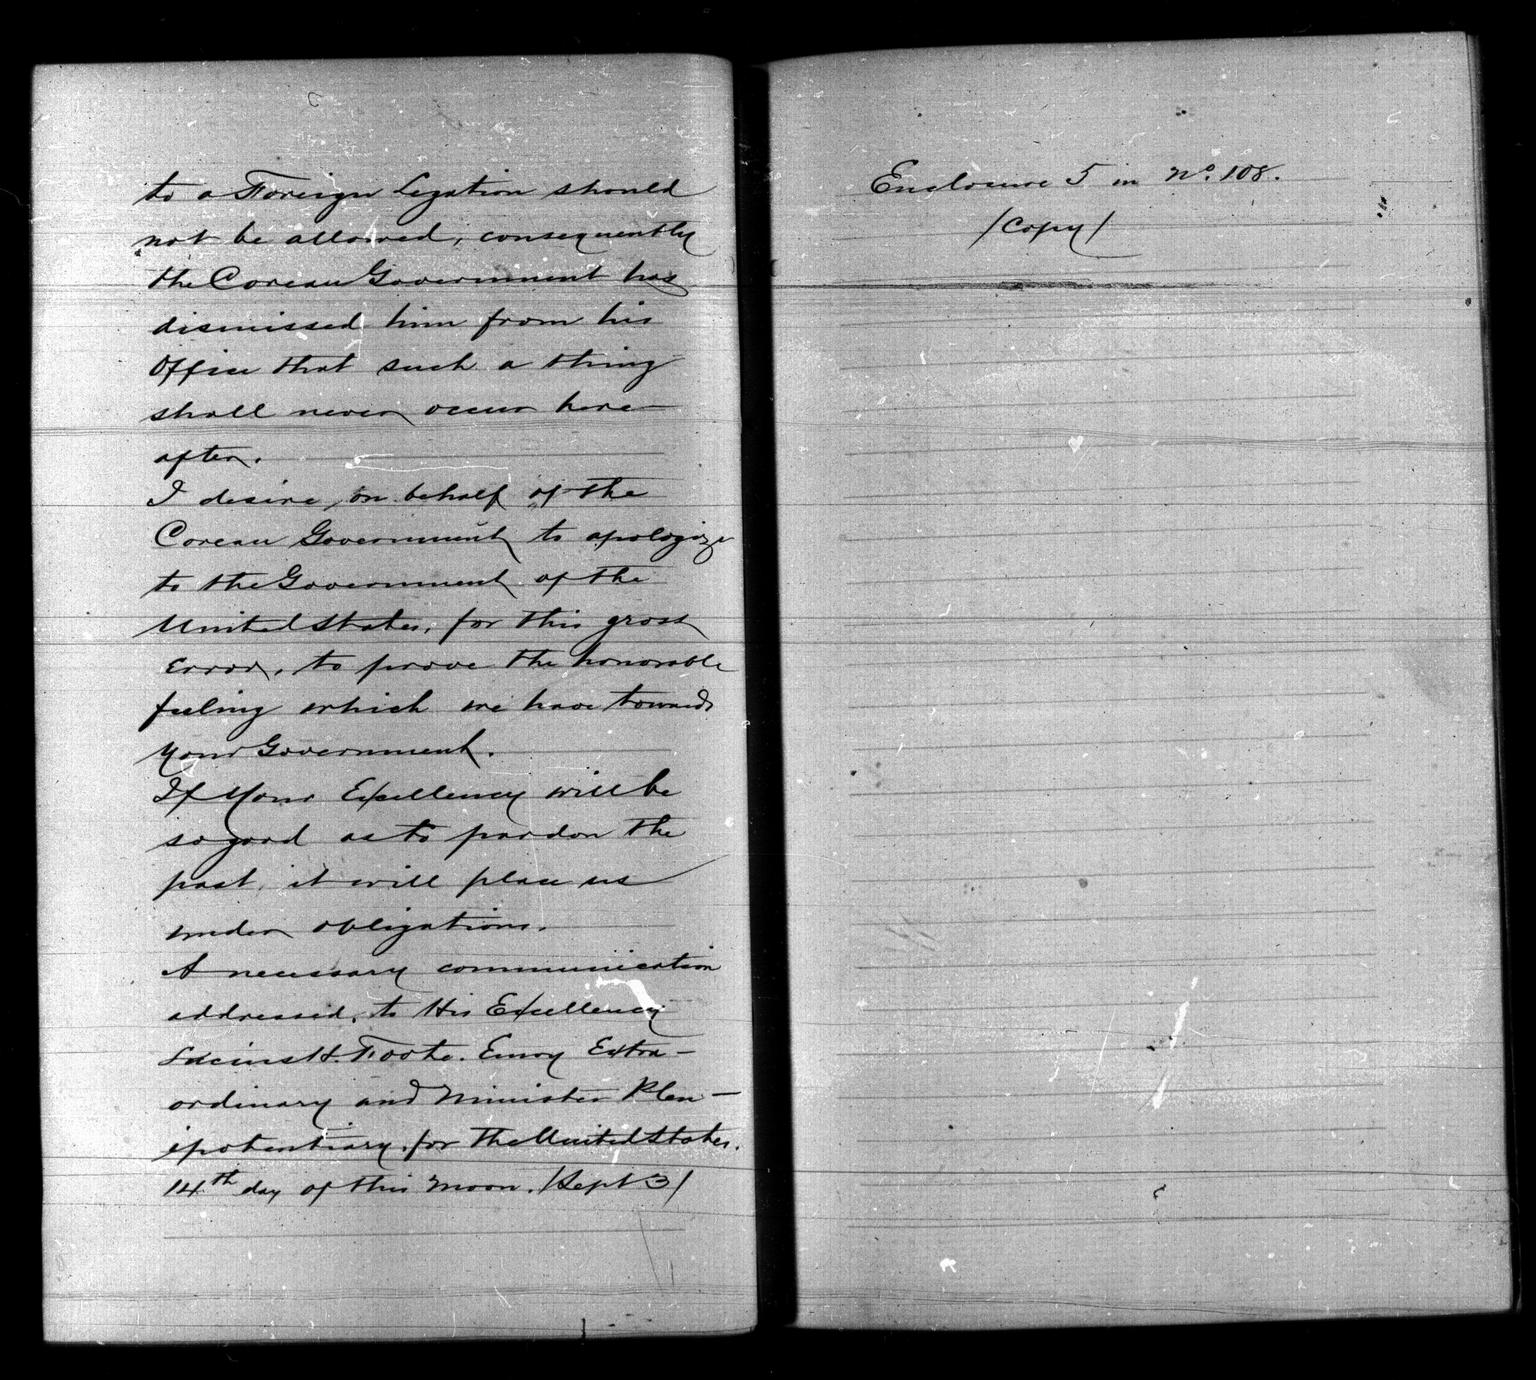 to a Foreign Legation should
not be allowed, consequently
the Corean Government has
dismissed him from his
Office that such a thing
shall never occur here-
after.
I desire, on behalf of the
Corean Government, to apologize
to the Government of the
United States, for this gross
Error, to prove the honorable
feeling which we have towards
your Government.
If Your Excellency will be
so good as to pardon the
past, it will place us
under obligations.
A necessary communication
addressed, to His Excellency
Lucius H. Foote. Envoy Extra-
ordinary and Minister Plen-
ipotentiary, for The United States.
14th day of this Moon. /Sept 3/
Enclosure 5 in No. 108.
/Copy/